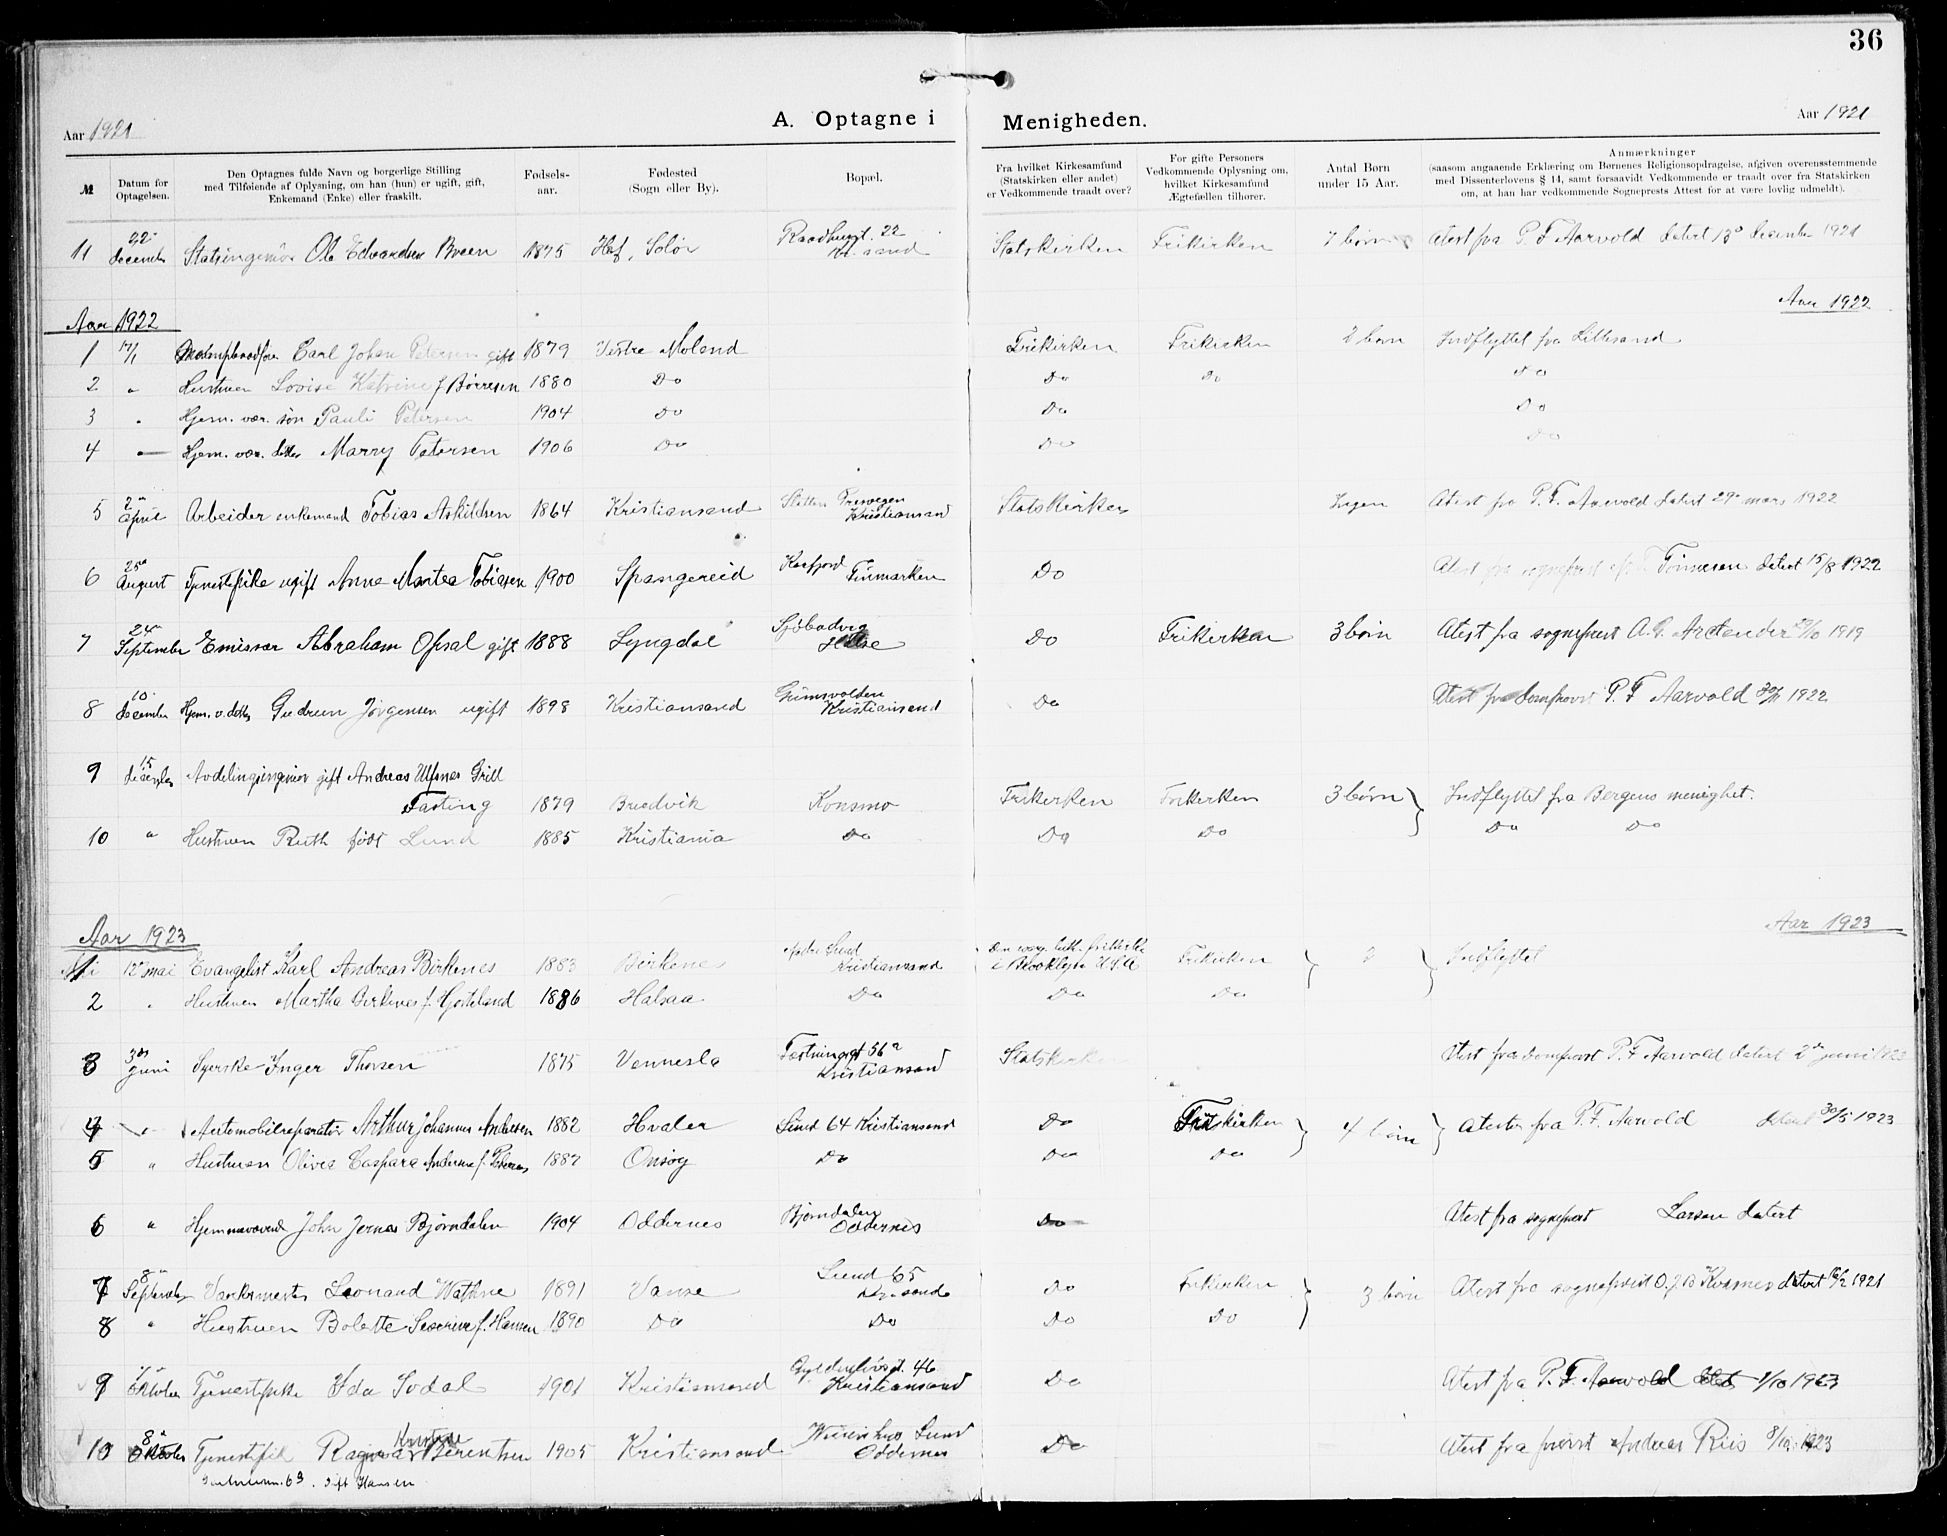 36
A. Optagne i Menigheden.
Aar 1921 Aar 1921
№ Datum for Optagelsen. Den Optagnes fulde Navn og borgerlige Stilling med Tilføiende af Oplysning, om han (hun) er ugift, gift, Enkemand (Enke) eller fraskilt. Fødselsaar. Fødested (Sogn eller By). Bopæl. Fra hvilket Kirkesamfund (Statskirken eller andet) er Vedkommende traadt over? For gifte Personers Vedkommende Oplysning om, hvilket Kirkesamfund Ægtefællen tilhører. Antal Børn under 15 Aar. Anmærkninger (saasom angaaende Erklæring om Børnenes Religionsopdragelse, afgiven overensstemmende med Dissenterlovens § 14, samt forsaavidt Vedkommende er traadt over fra Statskirken om, at han har vedkommende Sogneprests Attest for at være lovlig udmeldt).
11 22 December Statsingeniør Ole Edvardsen Breen 1875 Hof, Solør Raadhusgt. 22 Kr.sand Statskirken Frikirken 7 børn Atest fra P. F. Aarvold datert 13de desember 1921
Aar 1922 Aar 1922
1 17/1 Carl Johan Petersen gift 1879 Vestre Moland Frikirken Frikirken 2 børn Indflyttet fra Lillesand
2 " Hustruen Lovise Katrine f. Børresen 1880 Do Do Do Do
3 " Hjem. vær. søn Pauli Petersen 1904 Do Do Do
4 — Hjem. vær. datter Marry Petersen 1906 Do Do Do
5 2 april Arbeider enkemand Tobias Askildsen 1864 Kristiansand Kristiansand Statskirken Ingen Atest fra P. F. Aarvold datert 29 mars 1922
6 25 August Tjenestepike ugift Anne Martea Tobiasen 1900 Spangereid Kaafjord Finmarken Do Atest fra sogneprest Tønnesen datert 15/8 1922
7 24 September Emissær Abraham Opsal gift 1888 Lyngdal Do Frikirken 3 børn Atest fra sogneprest A. G. Arctander /10 1919
8 10 december Hjem. v. datter Gudrun Jørgensen ugift 1898 Kristiansand Grimsvolden Kristiansand Do Atest fra Domprovst P. F. Aarvold 1922
9 15 desember Avdelingsingeniør gift Andreas Ulfsnes Grill
Fasting 1879 Bredvik Konsmo Frikirken Frikirken 3 børn Indflyttet fra Bergens menighet.
10 " Hustruen Ruth født Lund 1885 Kristiania Do Do Do Do Do
Aar 1923 Aar 1923
1 12 mai Evangelist Karl Andreas Birkenes 1883 Birkene Lund Kristiansand Den evang. luth. frikirke i Brooklyn U.S.A Frikirken 2 Indflyttet
2 " Hustruen Martha Birkenes f. 1886 Halsaa Do Do Do
3 3 juni Syerske Inger Thorsen 1875 Vennesla Festningsgt 56a Kristiansand Statskirken Atest fra domprovst P. F. Aarvold datert 2 juni 1923
4 " Automobilreparatør Arthur Johannes Andersen 1882 Hvaler Lund 64 Kristiansand Do kirken 4 børn Atester fra P. F. Aarvold datert 30/5 1923
5 " Hustruen Olivia Caspara Andersen f. 1887 Onsøy Do Do Do
6 " Hjemmeværend John Jernes Bjørndalen 1904 Oddernes Bjørndalen Oddernes Do Atest fra sogneprest Larsen datert
7 8 September Værkmester Leonard Wathne 1891 Vanse Lund 65 Kr.sand Do Frikirken 3 børn Atest fra sogneprest datert 1921
8 " Hustruen Bolette Severine f. Hansen 1890 Do Do Do Do
9 Oktober Tjenestepike Ida Sodal 1901 Kristiansand Gyldenløvesgt. 46 Kristiansand Do Atest fra P. F. Aarvold datert 1/10 1923
10 8 Oktober Tjenestepik Berentsen 1905 Kristiansand Lund Oddernes Do Atest fra provst Andreas Riis 1923
gift Hansen